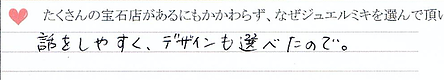 たくさんの宝石店があるにもかかわらず、なぜジュエルミキを選んで頂い
話をしやすく、デザインも選べたので。